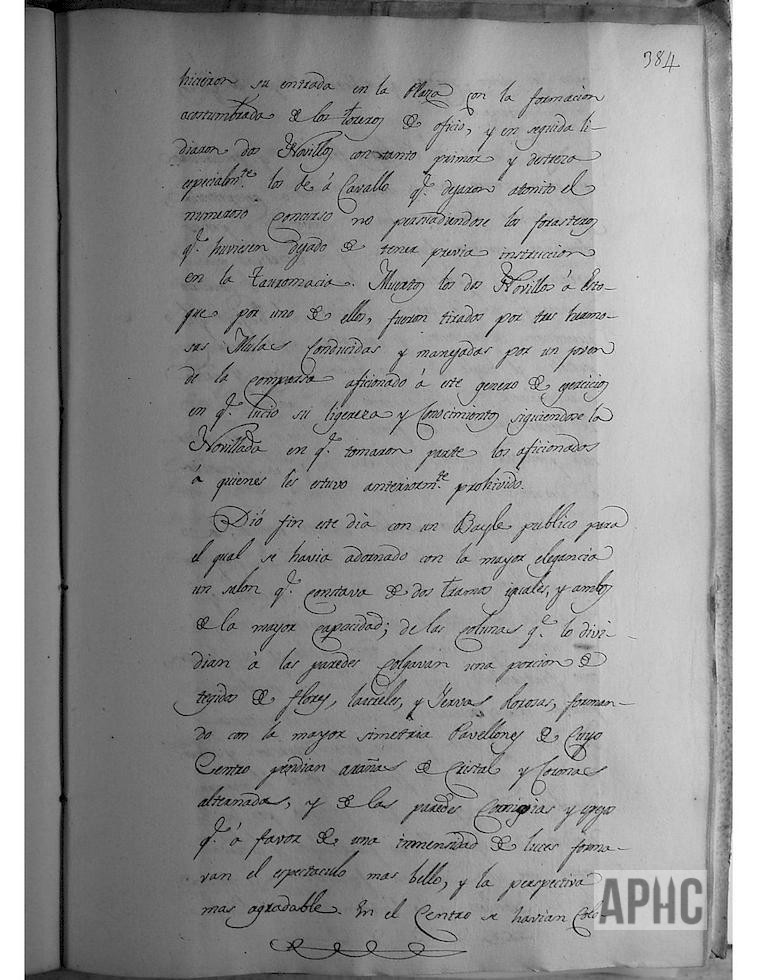 384
hicieron su entrada en la Plaza con la formacion
acostumbrada de los toreros de oficio, y en seguida li-
diaron dos Novillos con tanto primor y destreza
especialmte. los de á Cavallo qe. dejaron atonito el
numeroso Concurso no persuadiendose los forasteros
qe. huviesen dejado de tener previa instruccion
en la Tauromacia. Muertos los dos Novillos á Esto-
que por uno de ellos, fueron tirados por tres hermo-
sas Mulas Conducidas y manejadas por un joven
de la comparsa aficionado á este genero de egercicios
en qe. lucio su ligereza y Conocimientos siguiendose la
Novillada en qe. tomaron parte los aficionados
á quienes les estuvo anteriormte. prohivido.
Dió fin este dia con un Bayle publico para
el qual se havia adornado con la mayor elegancia
un salon qe. constava de dos tramos iguales, y ambos
de la mayor capacidad; de las Colunas qe. lo divi-
dian á las paredes Colgavan una porcion de
tegidos de flores, laureles, y Yervas olorosas, forman-
do con la mayor simetria Pavellones de Cuyo
Centro pendian arañas de Cristal y Coronas
alternadas, y de las paredes Cornicopias y espejos
qe. á favor de una inmensidad de luces forma-
van el espectaculo mas bello, y la perspectiva
mas agradable. En el Centro se havian Colo-
APHC